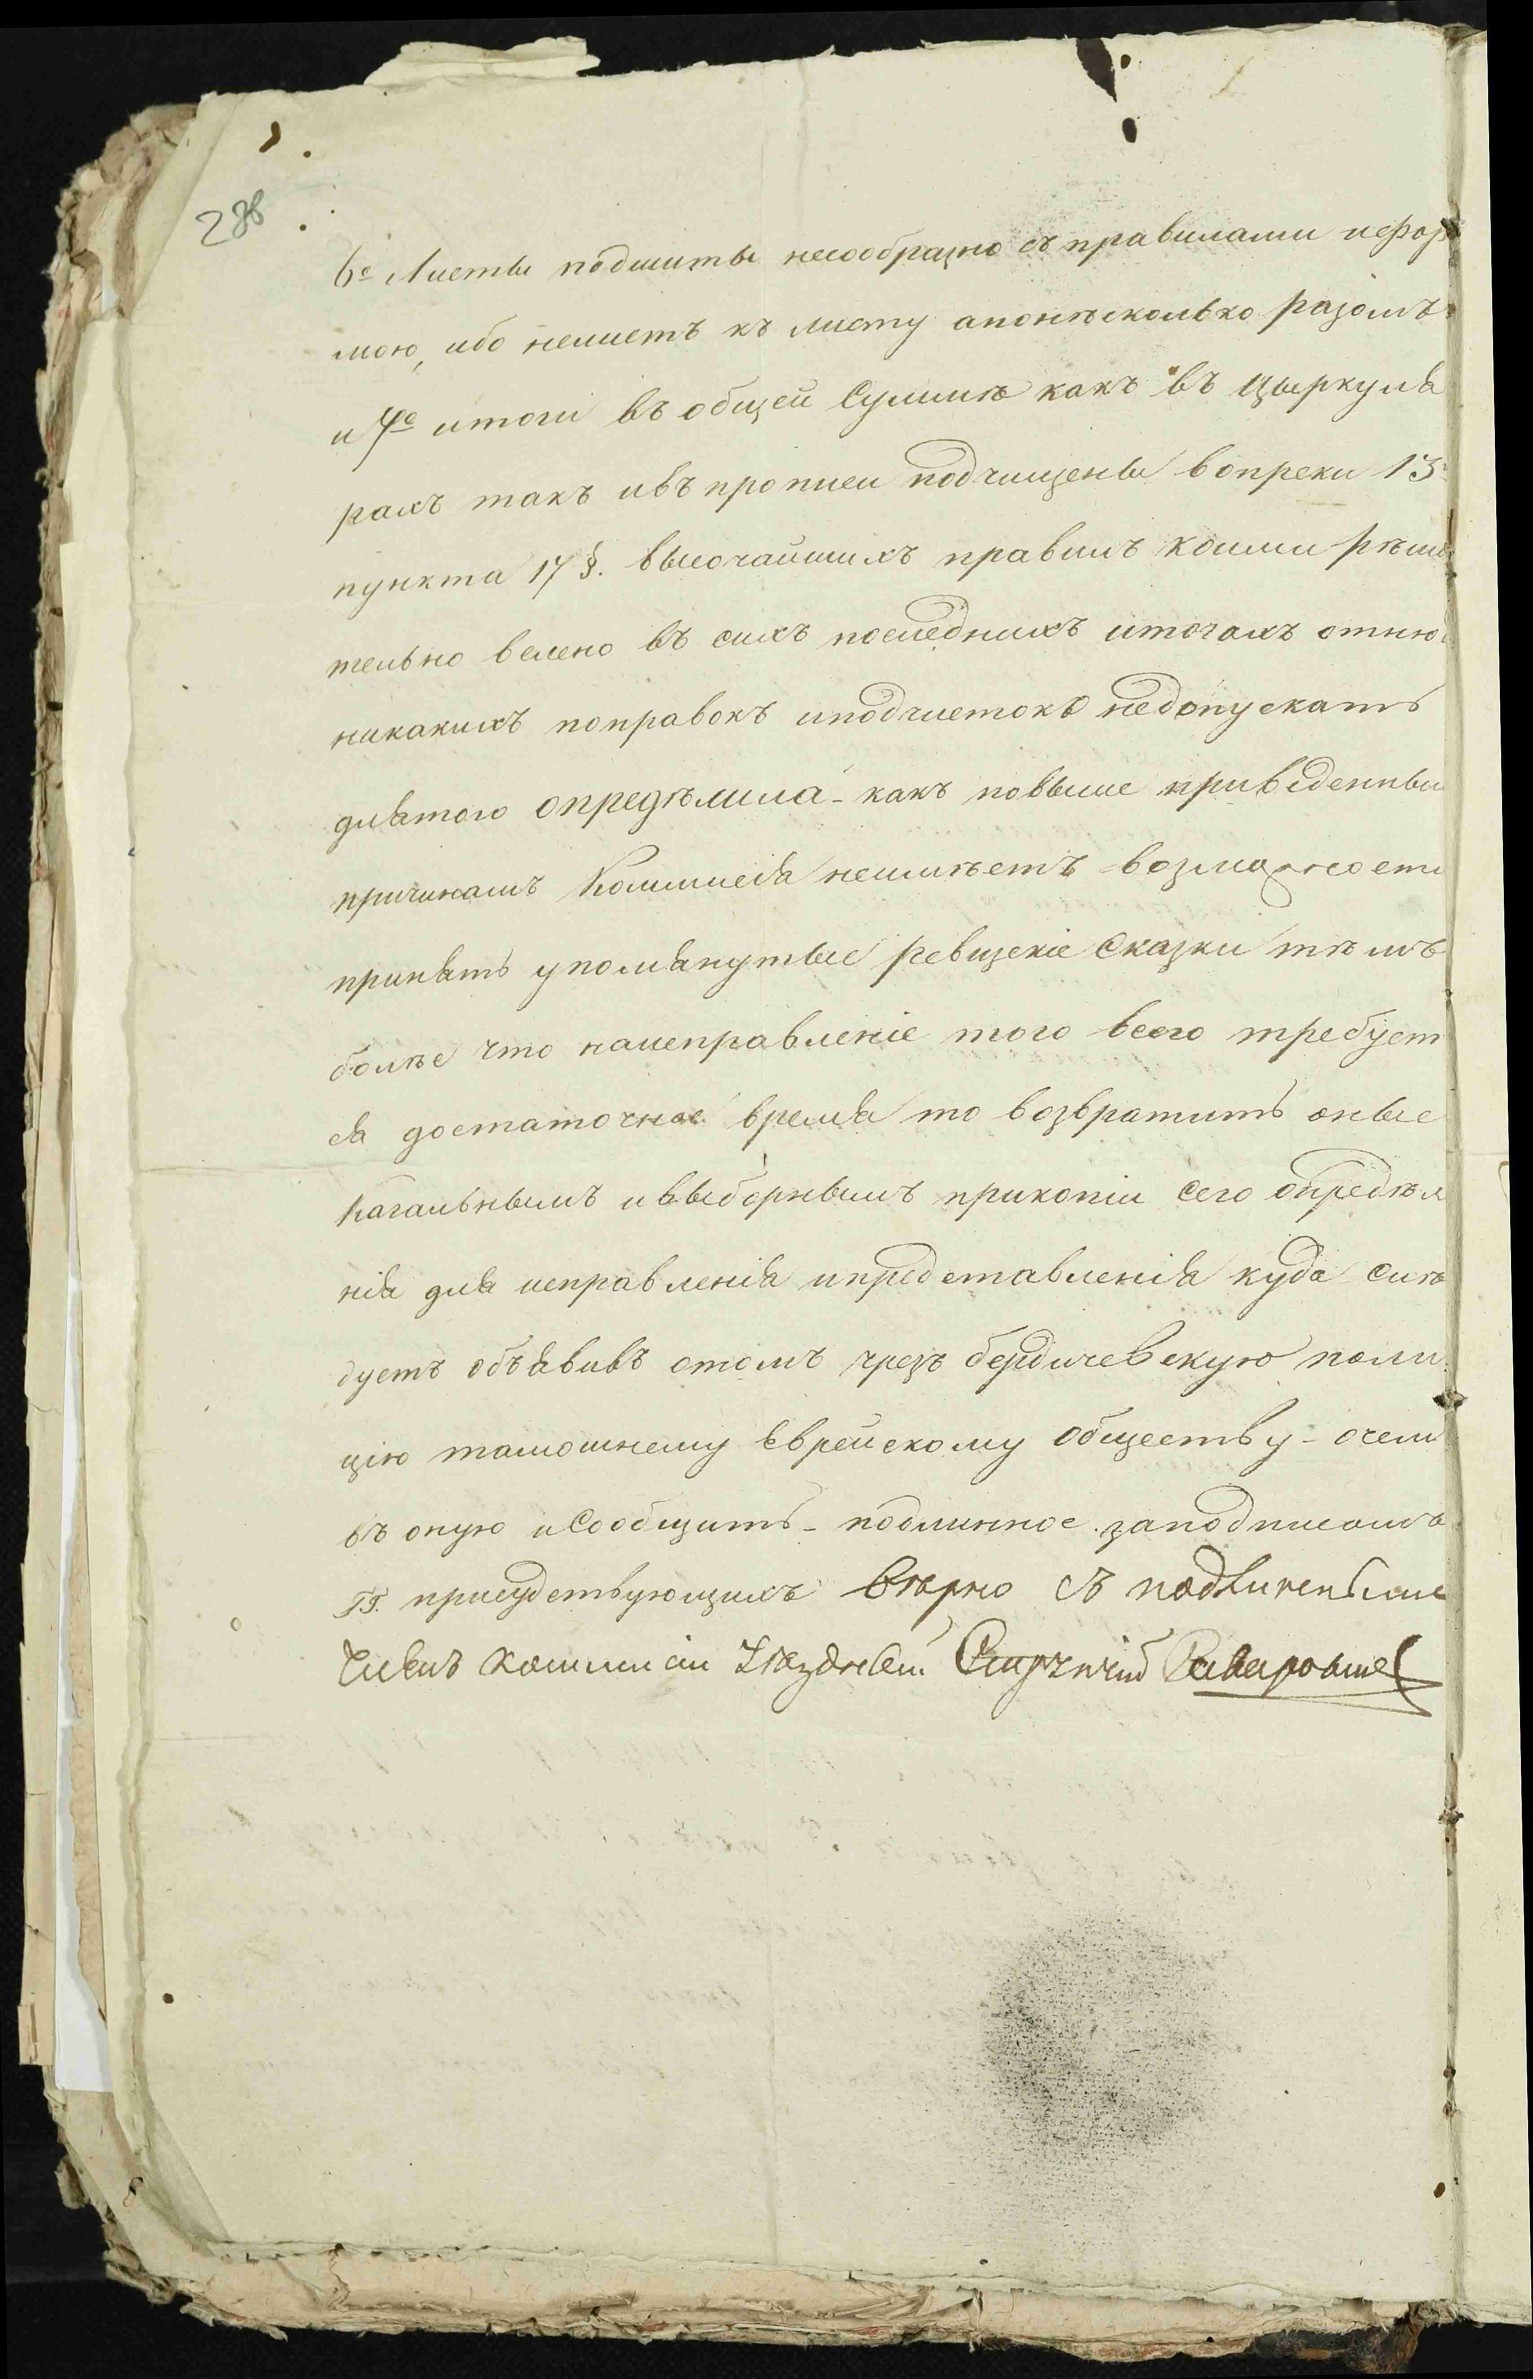 286
6е Листы подшиты несообразно съ правилами ифор
мою, ибо нелистъ къ листу апонѣсколько разомъ
и 7е итоги въ общей Суммѣ какъ въ цыркуля
рахъ такъ ивъ прописи подчищены вопреки 13
пункта 17 §. высочайшихъ правилъ коими рѣши
тельно велено въ сихъ последнихъ итогахъ отнюд
никакихъ поправокъ иподчистокъ недопускать
длятого опредѣлила - какъ повыше приведенным
причинамъ Коммисія неимѣетъ возможности
принять упомянутые ревизскіе Сказки тѣмъ
болѣе что наисправленіе того всего требует
ся достаточное время то возвратить оные
Кагальнымъ ивыборнымъ прикопіи сего опредѣл
нія для исправленія ипредставленія куда слѣ
дуетъ объявивъ отомъ чрезъ бердичевскую поли
цію тамошнему Еврейскому Обществу - очем
въ оную иСообщить - подлинное заподписомъ
ГГ. присудствующихъ Вѣрно съ подлиннымъ
Членъ Коммисіи Уѣздный